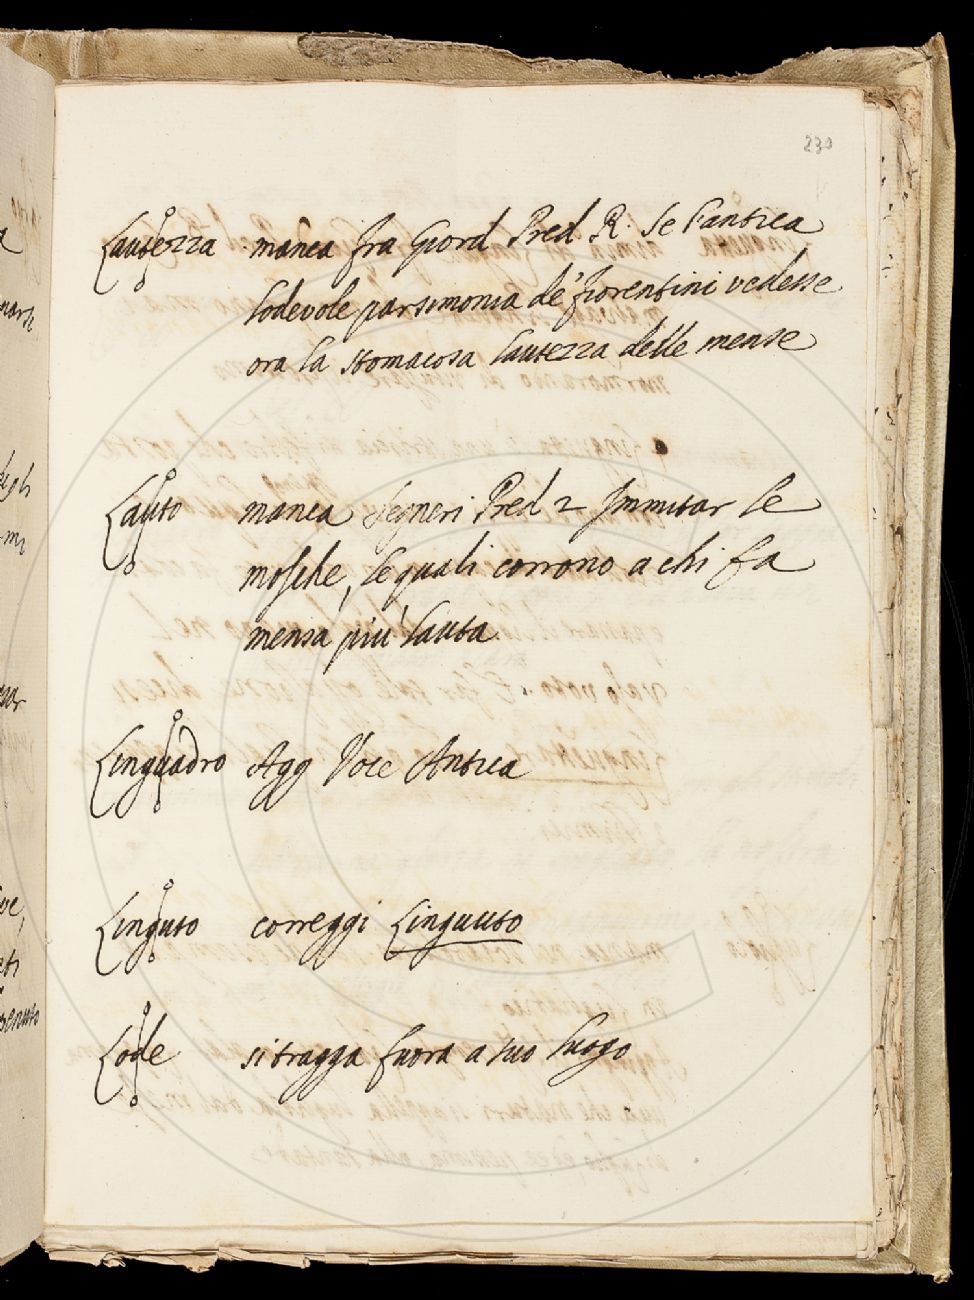 230
Lautezza manca fra Giord Pred R. Se l'antica
lodevole parsimonia de' fiorentini vedesse
ora la stomacosa lautezza delle mense
Lauto manca Segneri Pred 2 Immitar le
mosche, le quali corrono a chi fa
mensa più lauta
Linguadro Agg Voce Antica
Linguto correggi Linguuto
Lode si tragga fuora a suo luogo